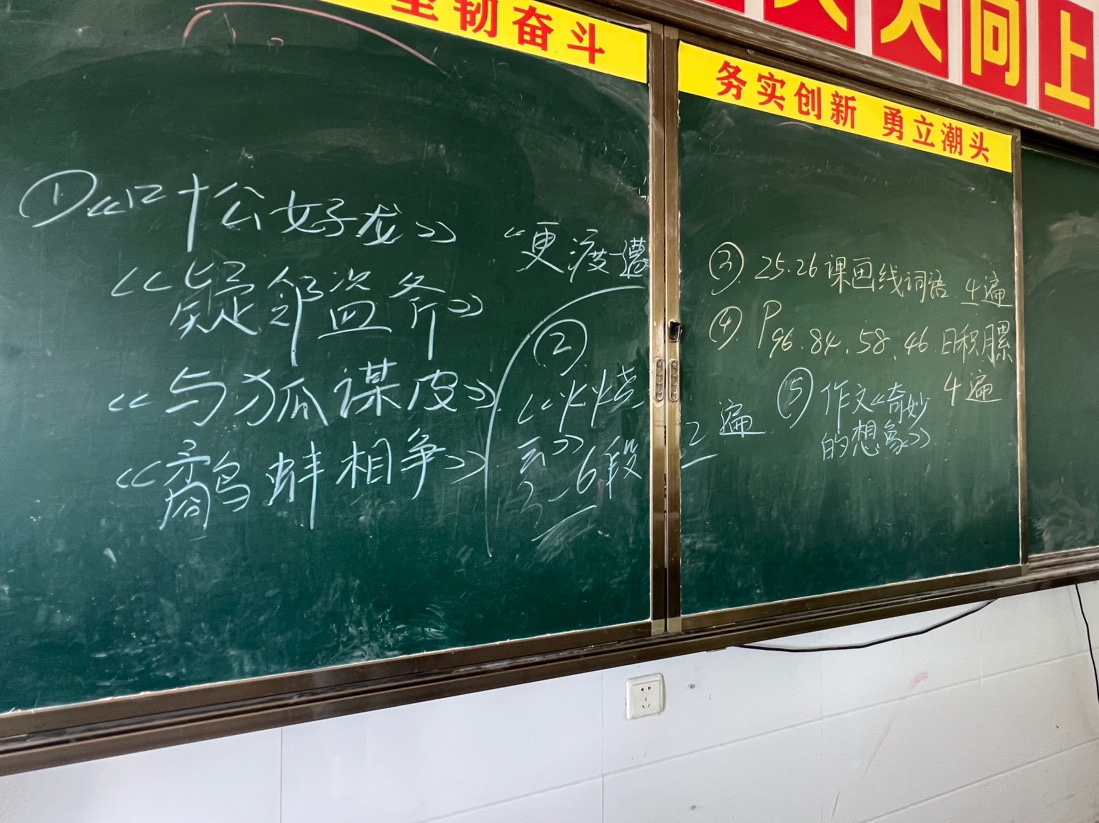 坚韧奋斗
务实创新 勇立潮头
天向上
①《叶公好龙》
《疑邻盗斧》
《与狐谋皮》
《鹬蚌相争》
“更渡遭
②
《火烧
云》
3-6段
2遍
③ 25.26课画线词语 4遍
④ P96.84.58.46 日积月累
4遍
⑤ 作文《奇妙
的想象》